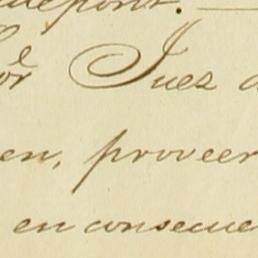 Sor Juez
en, proveer
en consecue